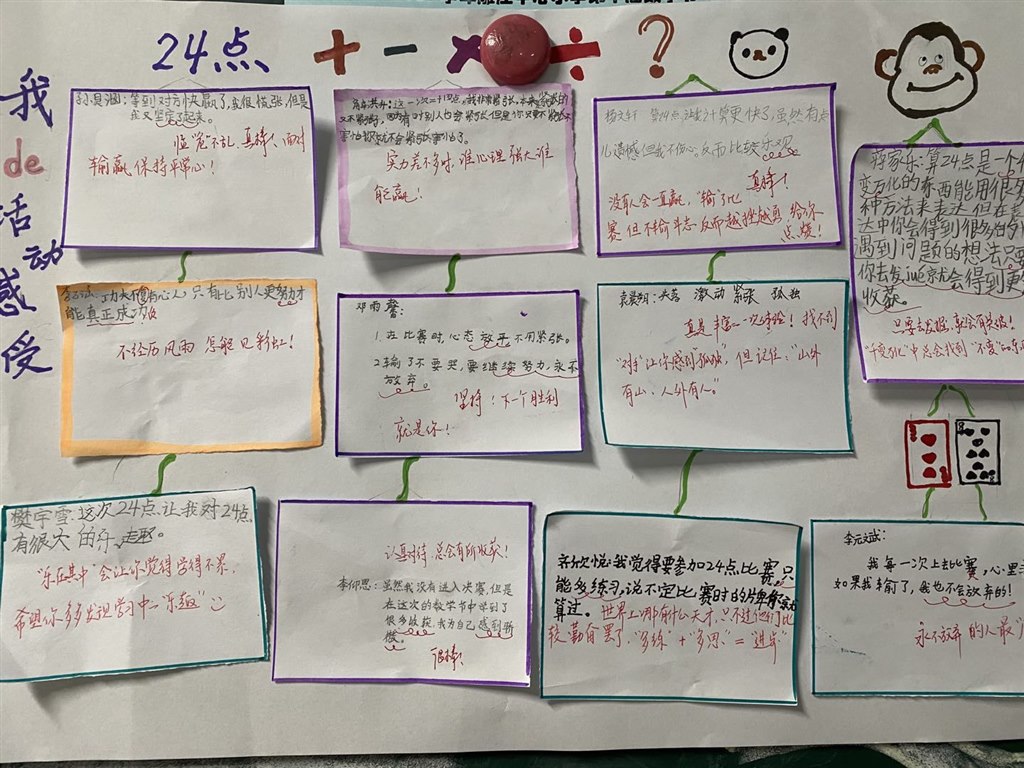 24点 + - × ÷ ?
我
de
活
动
感
受
等到对方快赢了,我很慌张,但是
我又坚定了起来。
临"危"不乱,真棒!面对
输赢,保持平常心!
实力差不多时,谁心理强大谁
能赢!
算24点,让我计算更快了,虽然有点
儿遗憾但我不伤心。反而比较乐观
真棒!
没有人会一直赢,"输"了比
赛但不输斗志反而越挫越勇,给你
点赞!
蒋家乐:算24点是一个
变万化的东西能用很多
种方法来表达但在表
达中你会得到很多的多
遇到问题的想法只要
你去发jue京就会得到更
收获。
只要去发掘,就会有突破!
"千变万化"中总会找到"不变"的东
功夫不负有心人,只有比别人更努力才
能真正成功
不经历风雨 怎能见彩虹!
邓雨馨:
1.在比赛时,心态放平不用紧张。
2.输了不要哭,要继续努力,永不
放弃。
坚持!下一个胜利
就是你!
失落 激动 紧张 孤独
真是丰富的一次体验!找不到
"对手"让你感到"孤独",但记住:"山外
有山,人外有人"。
樊宇雪:这次24点,让我对24点
有很大的乐趣。
"乐在其中"会让你觉得学得不累,
希望你多多发现学习中的"乐趣"
认真对待 总会有所收获!
李仰思:虽然我没有进入决赛,但是
在这次的数学书中学到了
很多收获,我为自己感到骄
傲。
很棒!
齐欣悦:我觉得要参加24点比赛,只
能多练习,说不定比赛时的牌有你
算过。世界上哪有什么天才,只不过他们比
较勤奋罢了,"多练"+"多思"="进步"
李元斌:
我每一次上去比赛,心里
如果我输了,我也不会放弃的!
永不放弃的人最